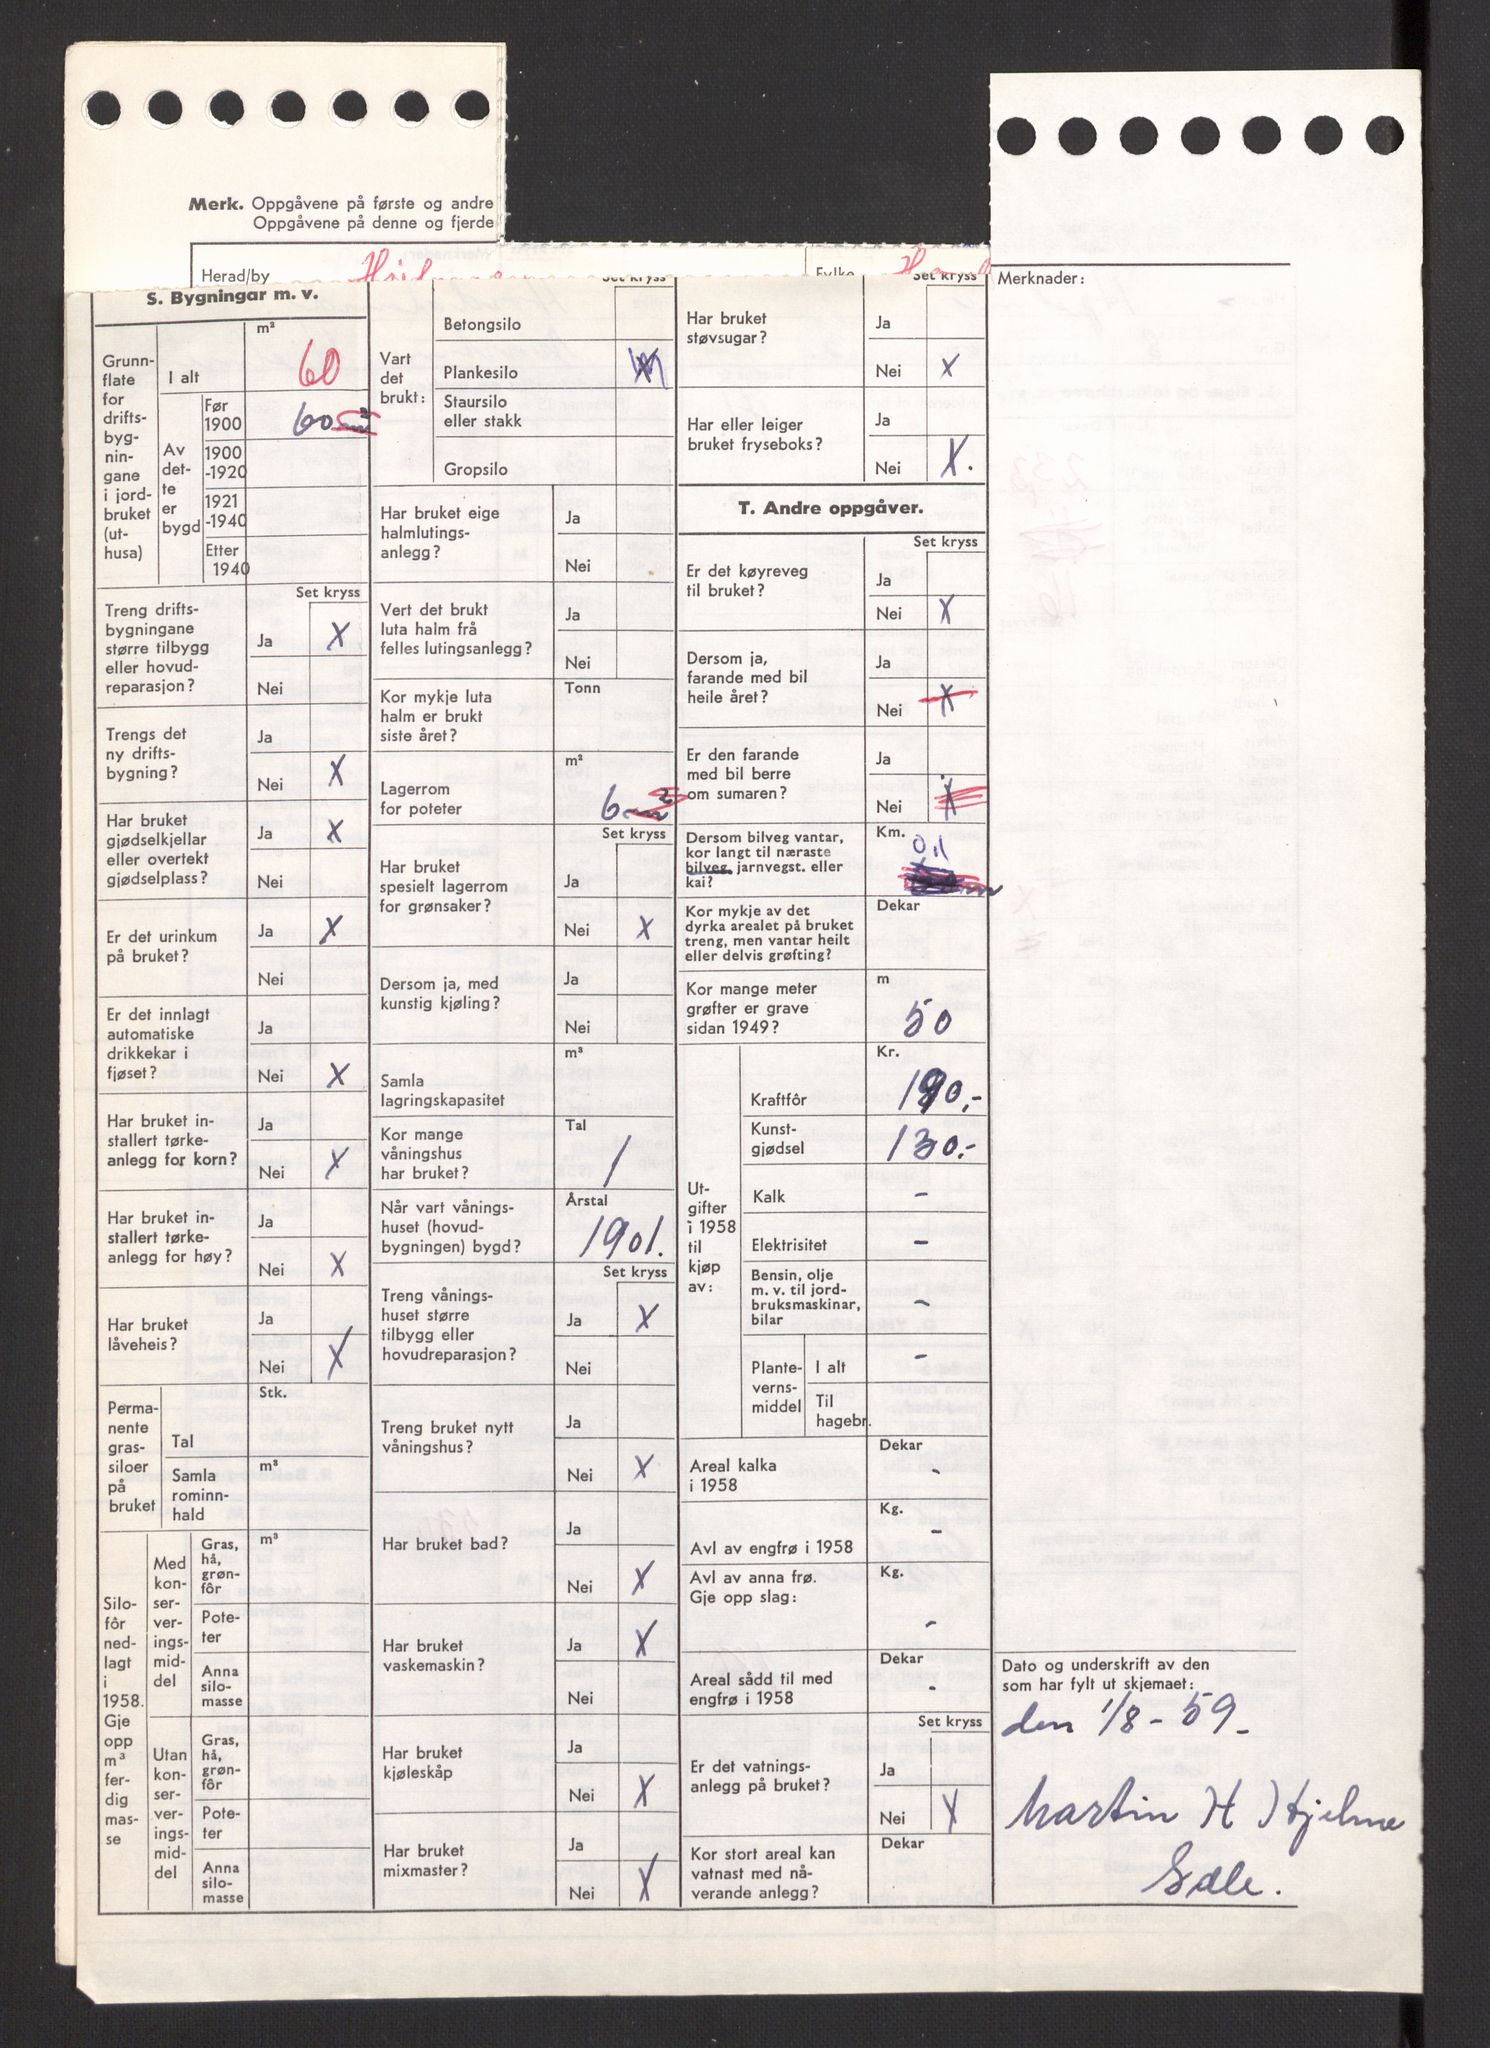 Merk. Oppgåvene på første og andre
Oppgåvene på denne og fjerde
Herad/by
Fylke
S. Bygningar m. v.
Grunn-
flate
for
drifts-
byg-
nin-
gane
i jord-
bruket
(ut-
husa)
m²
I alt 60
Av
det-
te
er
bygd
Før
1900 60 m²
1900
-1920
1921
-1940
Etter
1940
Set kryss
Treng drifts-
bygningane
større tilbygg
eller hovud-
reparasjon?
Ja X
Nei
Trengs det
ny drifts-
bygning?
Ja
Nei X
Har bruket
gjødselkjellar
eller overtekt
gjødselplass?
Ja X
Nei
Er det urinkum
på bruket?
Ja X
Nei
Er det innlagt
automatiske
drikkekar i
fjøset?
Ja
Nei X
Har bruket in-
stallert tørke-
anlegg for korn?
Ja
Nei X
Har bruket in-
stallert tørke-
anlegg for høy?
Ja
Nei X
Har bruket
låveheis?
Ja
Nei X
Perma-
nente
gras-
siloer
på
bruket
Stk.
Tal
m³
Samla
rominn-
hald
Silo-
fôr
ned-
lagt
i
1958.
Gje
opp
m³
fer-
dig
mas-
se
Med
kon-
ser-
ver-
ings-
mid-
del
m³
Gras,
hå,
grøn-
fôr
Pote-
ter
Anna
silo-
masse
Utan
kon-
ser-
ver-
ings-
mid-
del
Gras,
hå,
grøn-
fôr
Pote-
ter
Anna
silo-
masse
Set kryss
Vart
det
brukt:
Betongsilo
Plankesilo
Staursilo
eller stakk
Gropsilo
Har bruket eige
halmlutings-
anlegg?
Ja
Nei
Vert det brukt
luta halm frå
felles lutingsanlegg?
Ja
Nei
Kor mykje luta
halm er brukt
siste året?
Tonn
Lagerrom
for poteter
m²
6 m²
Set kryss
Har bruket
spesielt lagerrom
for grønsaker?
Ja
Nei X
Dersom ja, med
kunstig kjøling?
Ja
Nei
Samla
lagringskapasitet
m³
Kor mange
våningshus
har bruket?
Tal
1
Når vart vånings-
huset (hovud-
bygningen) bygd?
Årstal
1901.
Set kryss
Treng vånings-
huset større
tilbygg eller
hovudreparasjon?
Ja X
Nei
Treng bruket nytt
våningshus?
Ja
Nei X
Har bruket bad?
Ja
Nei X
Har bruket
vaskemaskin?
Ja X
Nei
Har bruket
kjøleskåp
Ja
Nei X
Har bruket
mixmaster?
Ja
Nei X
Set kryss
Har bruket
støvsugar?
Ja
Nei X
Har eller leiger
bruket fryseboks?
Ja
Nei X.
T. Andre oppgåver.
Set kryss
Er det køyreveg
til bruket?
Ja
Nei X
Dersom ja,
farande med bil
heile året?
Ja
Nei X
Er den farande
med bil berre
om sumaren?
Ja
Nei X
Dersom bilveg vantar,
kor langt til næraste
bilveg, jarnvegst. eller
kai?
Km.
0,1
Kor mykje av det
dyrka arealet på bruket
treng, men vantar heilt
eller delvis grøfting?
Dekar
Kor mange meter
grøfter er grave
sidan 1949?
m
50
Ut-
gifter
i 1958
til
kjøp
av:
Kr.
Kraftfôr
Kunst-
gjødsel 130.-
Kalk -
Elektrisitet -
Bensin, olje
m. v. til jord-
bruksmaskinar,
bilar -
Plante-
verns-
middel
I alt -
Til
hagebr.
Areal kalka
i 1958
Dekar
-
Avl av engfrø i 1958
Kg.
-
Avl av anna frø.
Gje opp slag:
Kg.
-
Areal sådd til med
engfrø i 1958
Dekar
-
Set kryss
Er det vatnings-
anlegg på bruket?
Ja
Nei X
Kor stort areal kan
vatnast med nå-
verande anlegg?
Dekar
Merknader:
Dato og underskrift av den
som har fylt ut skjemaet:
den 1/8 - 59 -
Martin H Hjelme